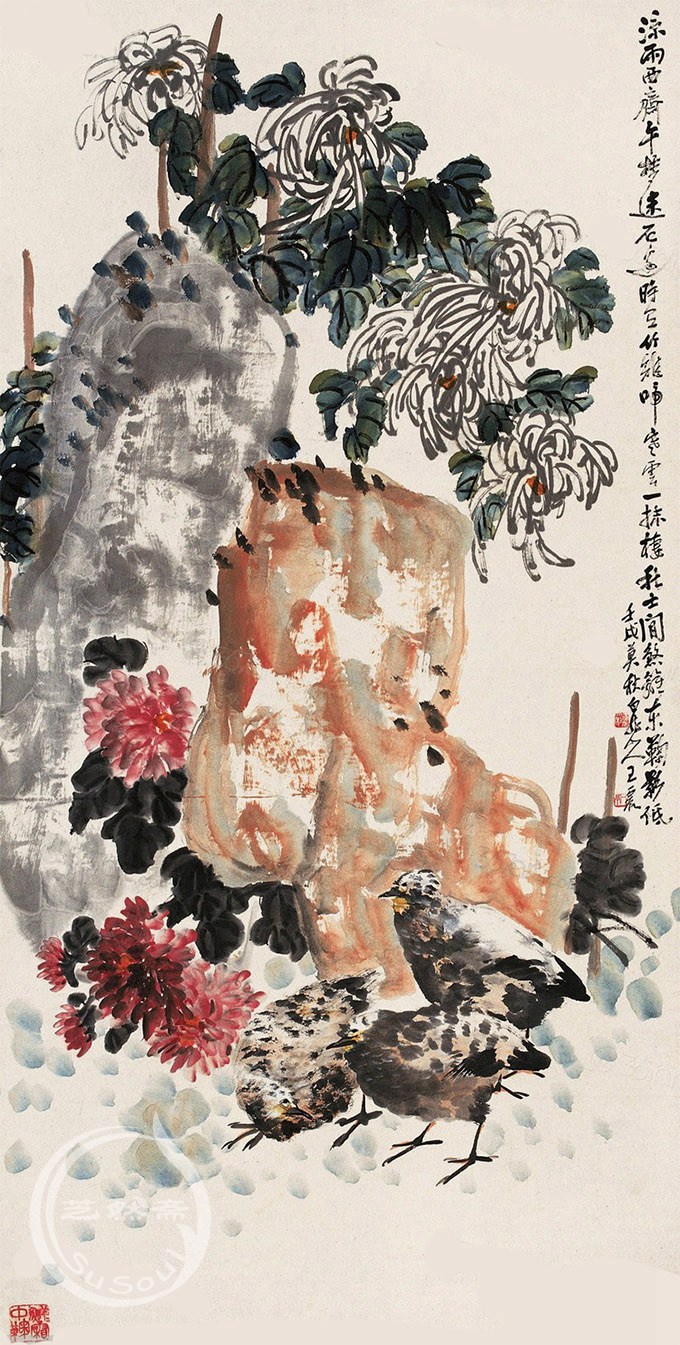 涼雨西齋午夢迷石邊時有竹雞啼寒雲一抹樓秋士閒煞籬東鞠影低
壬戌莫秋白龍山人王震
艺妙斋
SuSoul